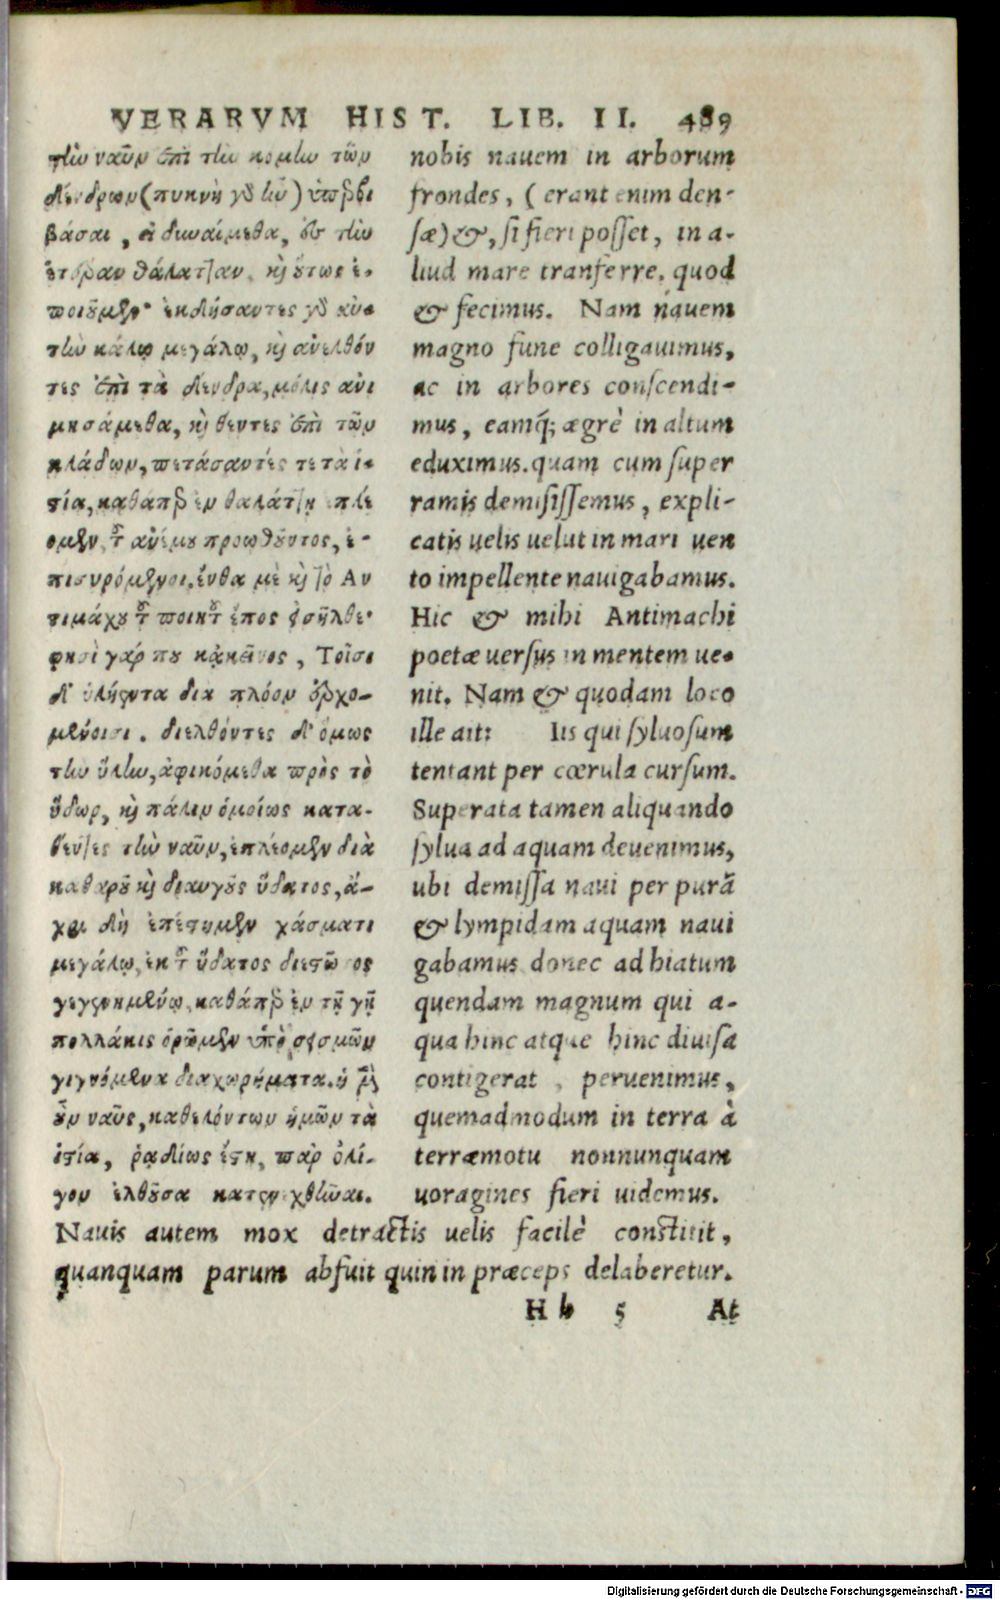 VERARVM HIST. LIB. II. 489
τὴν ναῦν ἐπὶ τὴν κομὴν τῶν
δένδρων (πυκνὴ γὸ ἦν) ὑπερβι
βάσαι, εἰ δυναίμεθα, ἐς τὴν
ἑτέραν θάλατταν. καὶ οὕτως ἐ-
ποιοῦμεν· ἐκδήσαντες γὸ αὐ-
τὴν κάλῳ μεγάλῳ, καὶ ἀνελθόν
τες ἐπὶ τὰ δένδρα, μόλις ἀνι
μησάμεθα, καὶ θέντες ἐπὶ τῶν
κλάδων, πετάσαντές τε τὰ ἱ-
στία, καθάπερ ἐν θαλάττῃ ἐπλέ
ομεν, τοῦ ἀνέμου προωθοῦντος, ἐ-
πισυρόμενοι. ἔνθα με καὶ τὸ Αν
τιμάχου τοῦ ποιητοῦ ἔπος ἐσῆλθε·
φησὶ γάρ που κᾀκεῖνος, Τοῖσι
δ' ὑλήεντα διὰ πλόον ἐρχο-
μένοισι. διελθόντες δ' ὅμως
τὴν ὕλην, ἀφικόμεθα πρὸς τὸ
ὕδωρ, καὶ πάλιν ὁμοίως κατα-
θέντες τὴν ναῦν, ἐπλέομεν διὰ
καθαροῦ καὶ διαυγοῦς ὕδατος, ἄ-
χρι δὴ ἐπέστημεν χάσματι
μεγάλῳ, ἐκ τοῦ ὕδατος διεστῶτος
γεγενημένῳ, καθάπερ ἐν τῇ γῇ
πολλάκις ὁρῶμεν ὑπὸ σεισμῶν
γιγνόμενα διαχωρήματα. ἡ μὲν
οὖν ναῦς, καθελόντων ἡμῶν τὰ
ἱστία, ῥᾳδίως ἔστη, παρ' ὀλί-
γον ἐλθοῦσα κατενεχθῆναι.
nobis nauem in arborum
frondes, (erant enim den-
sæ) &, si fieri posset, in a-
liud mare tranferre. quod
& fecimus. Nam nauem
magno fune colligauimus,
ac in arbores conscendi-
mus, eamq́; ægrè in altum
eduximus. quam cum super
ramis demisissemus, expli-
catis uelis uelut in mari uen
to impellente nauigabamus.
Hic & mihi Antimachi
poetæ uersus in mentem ue-
nit. Nam & quodam loco
ille ait: Iis qui syluosum
tentant per cœrula cursum.
Superata tamen aliquando
sylua ad aquam deuenimus,
ubi demissa naui per purā
& lympidam aquam naui
gabamus donec ad hiatum
quendam magnum qui a-
qua hinc atque hinc diuisa
contigerat, peruenimus,
quemadmodum in terra à
terræmotu nonnunquam
uoragines fieri uidemus.
Nauis autem mox detractis uelis facilè constitit,
quanquam parum abfuit quin in præceps delaberetur.
H h 5 At
Digitalisierung gefördert durch die Deutsche Forschungsgemeinschaft - DFG